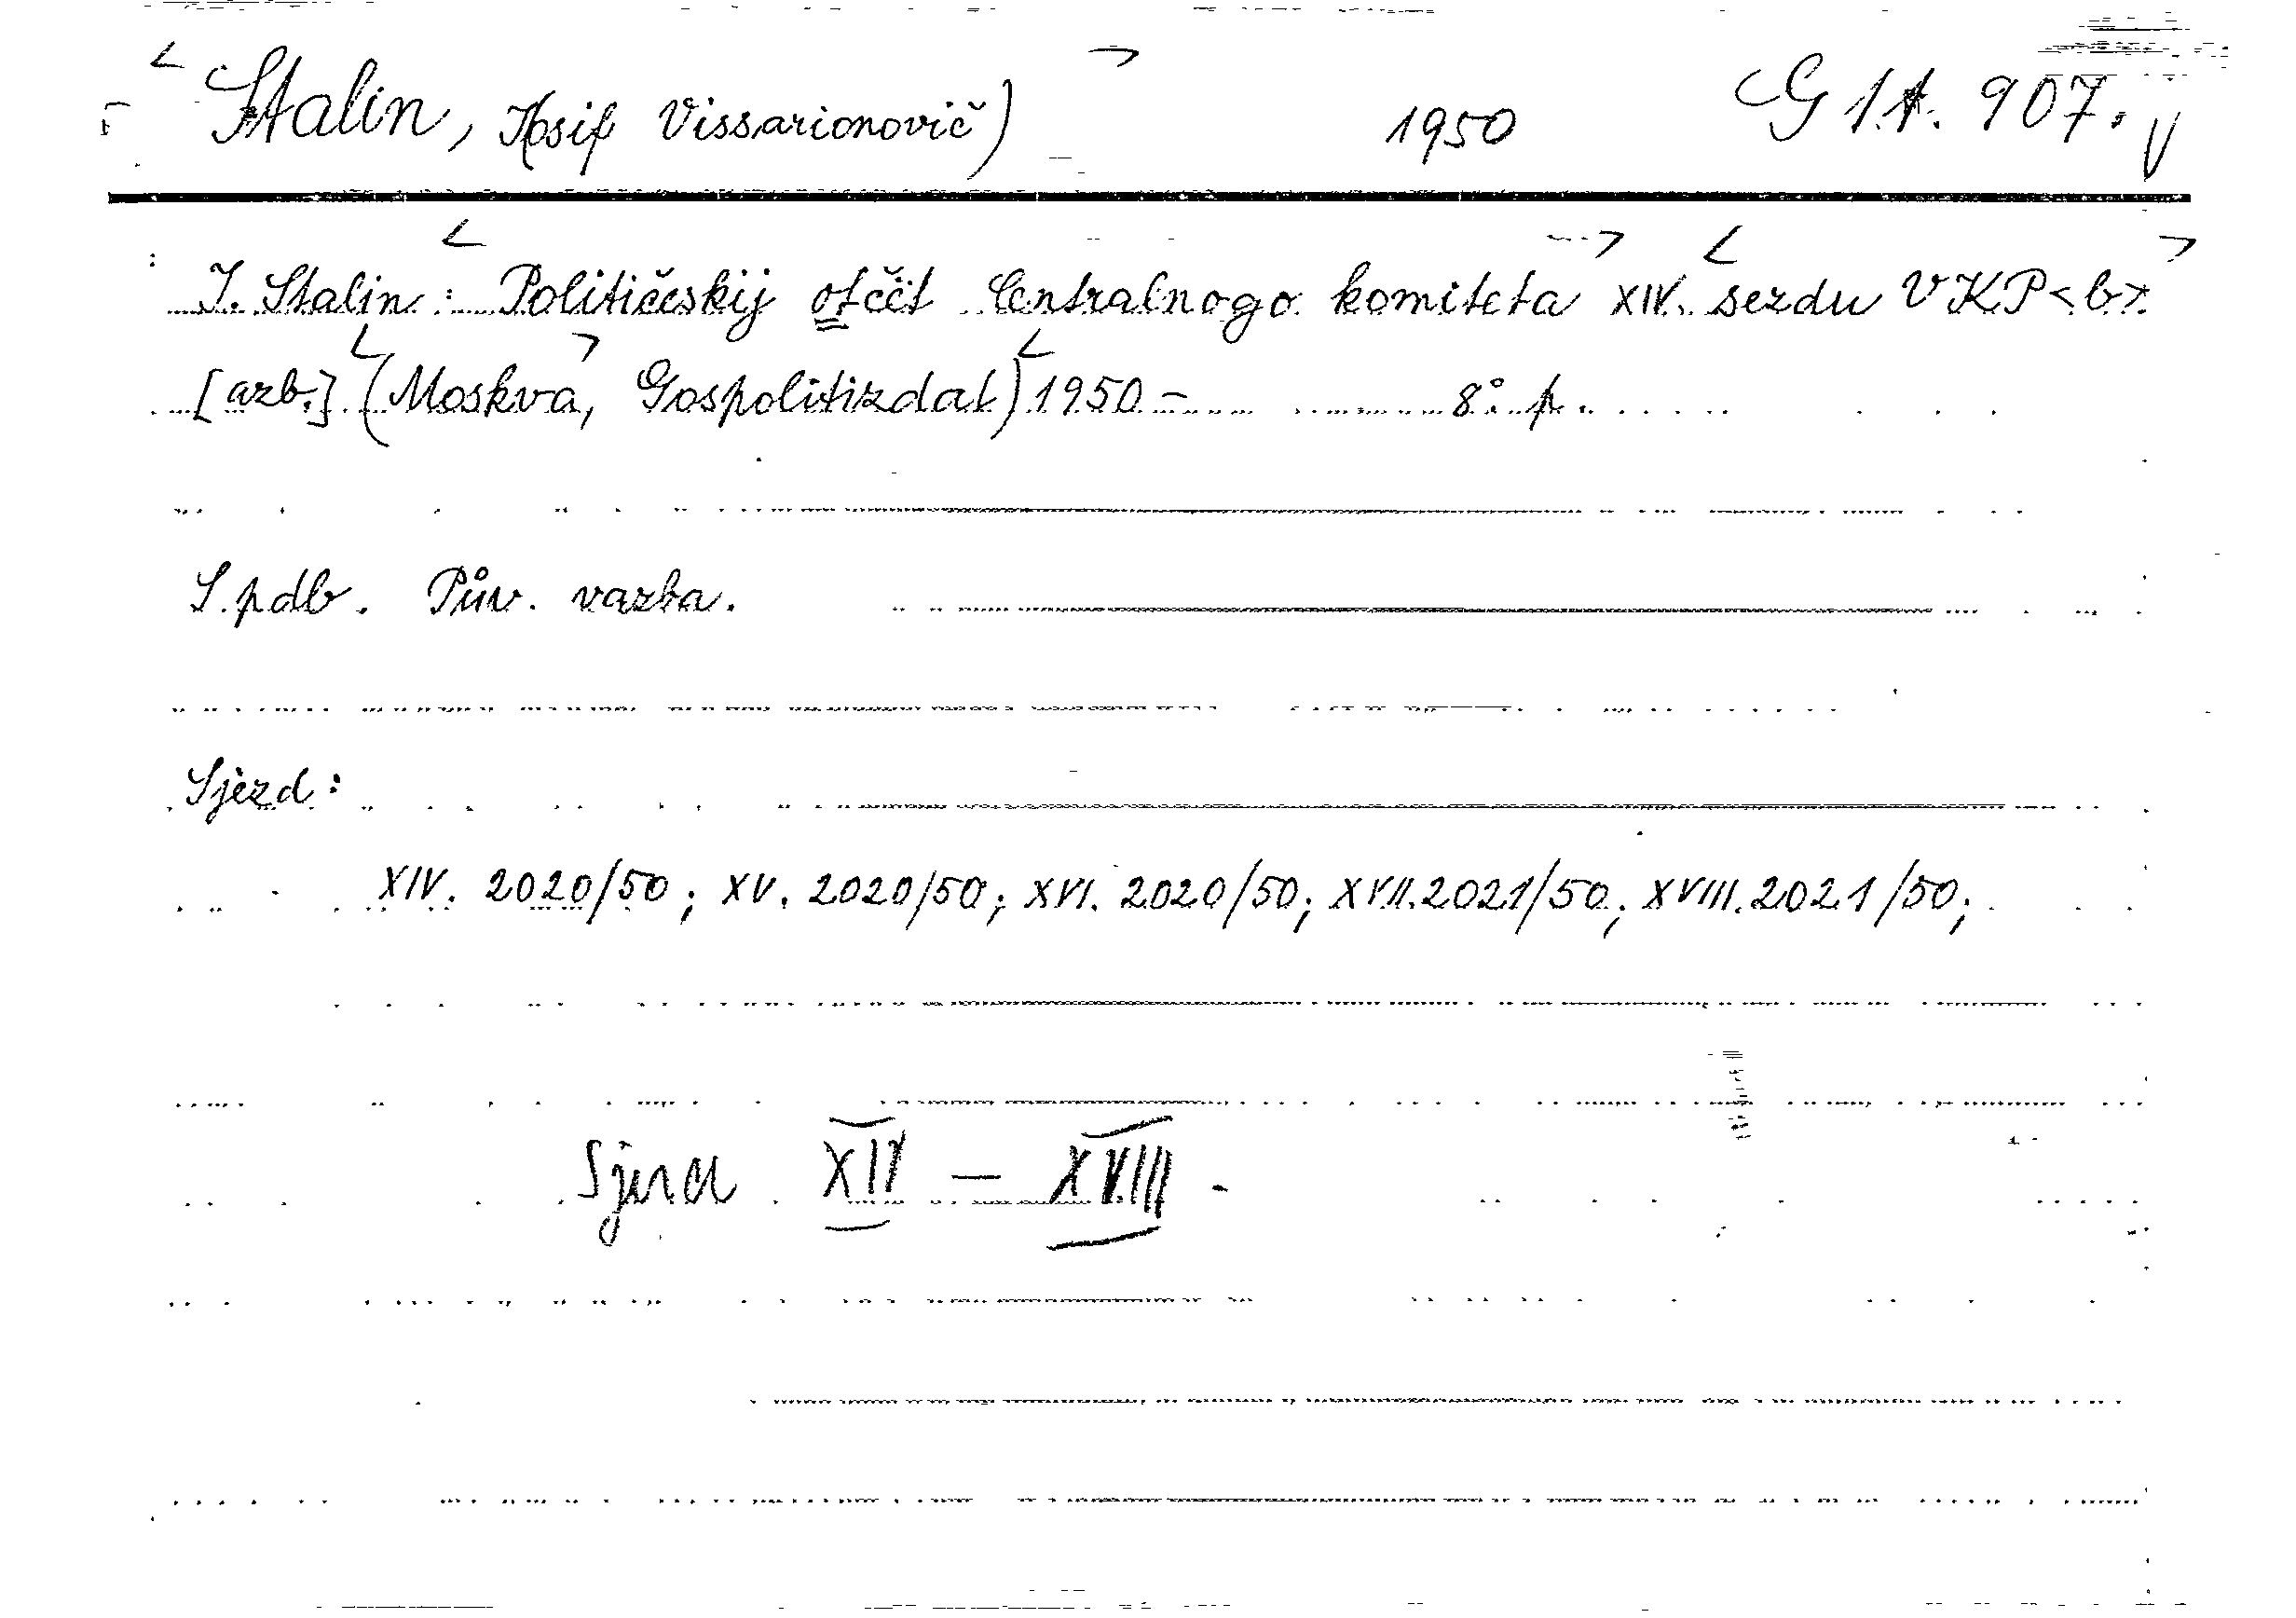 Stalin, (Iosif Vissarionovič) 1950 G 11. 907.
I. Stalin: Političeskij otčët Centralnogo komiteta XIV. sezdu VKP<b>.
[azb.] (Moskva, Gospolitizdat) 1950 - 8° p.
S. pdb. Pův. vazba.
Sjezd:
XIV. 2020/50; XV. 2020/50; XVI. 2020/50; XVII. 2021/50; XVIII. 2021/50;
Sjezd XIV - XVIII -